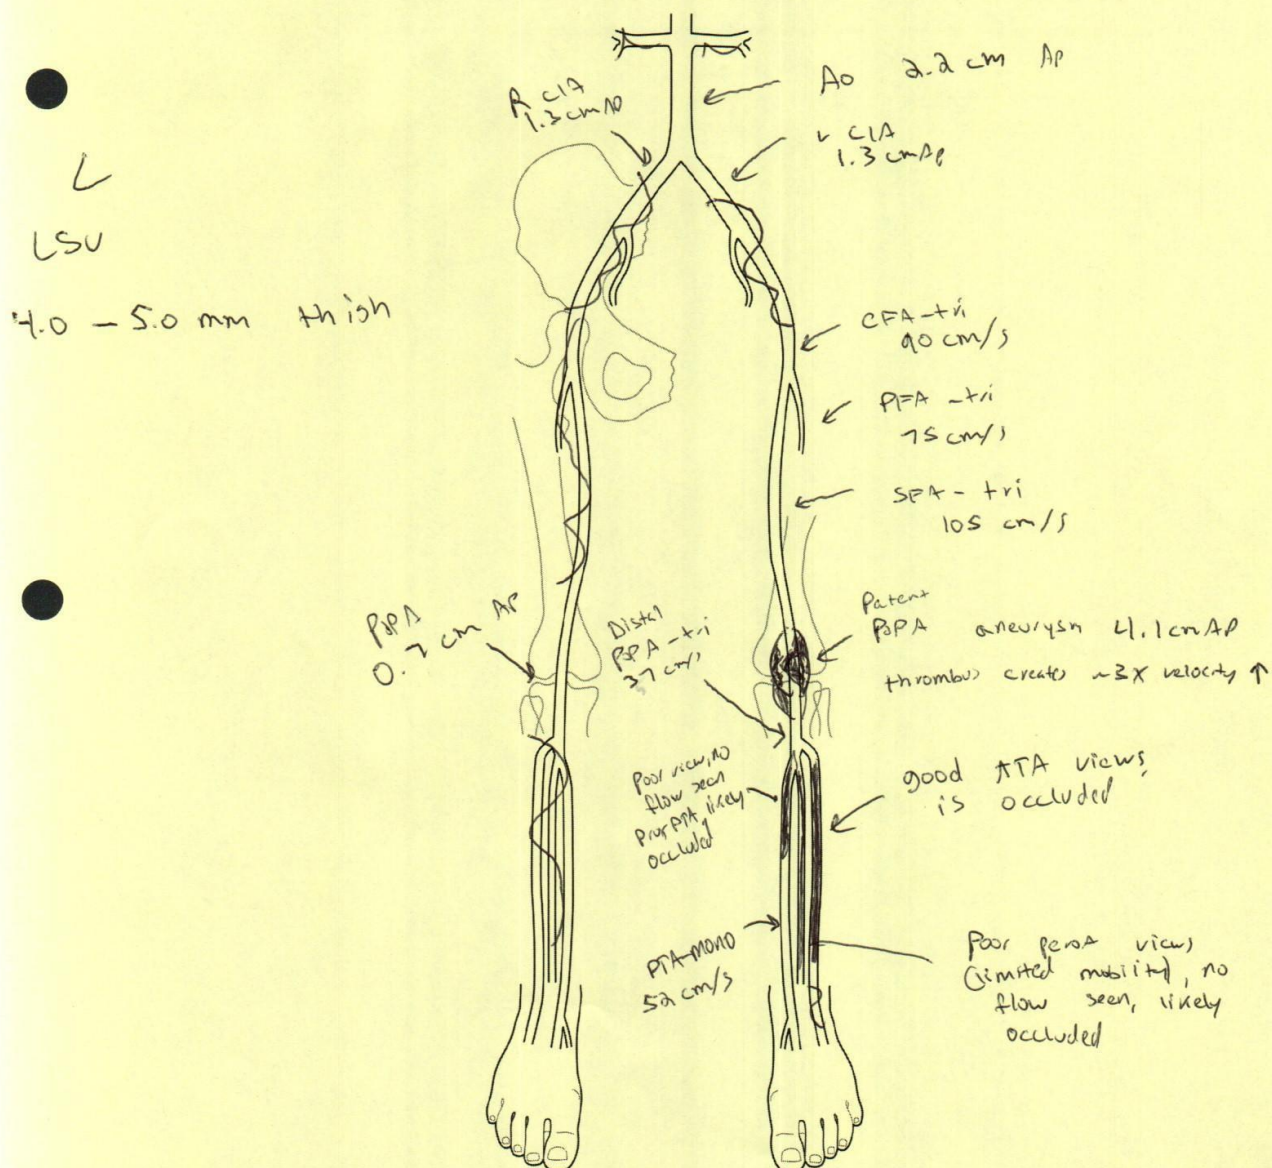 Ao 2.2 cm AP
R CIA
1.3 cm AP
L CIA
1.3 cm AP
L
LSV
4.0 - 5.0 mm thigh
CFA - tri
90 cm/s
PFA - tri
75 cm/s
SFA - tri
105 cm/s
PopA
0.7 cm AP
Distal
PopA - tri
37 cm/s
Patent
PopA aneurysm 4.1 cm AP
thrombus creates ~3X velocity ↑
Poor view, no
flow seen
Prox PTA, likely
occluded
good ATA views,
is occluded
PTA-mono
52 cm/s
Poor peroA views
(limited mobility), no
flow seen, likely
occluded